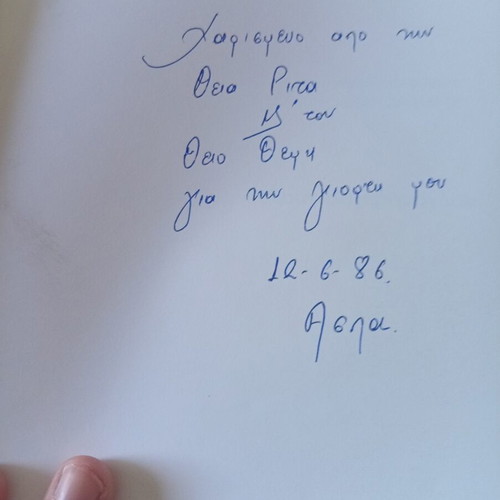 Χαρισμενο απο την
Θεια Ριτα
κ' τον
Θειο Θεμη
για την γιορτη μου
12-6-86.